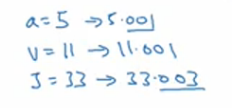 a = 5 → 5.001
V = 11 → 11.001
J = 33 → 33.003